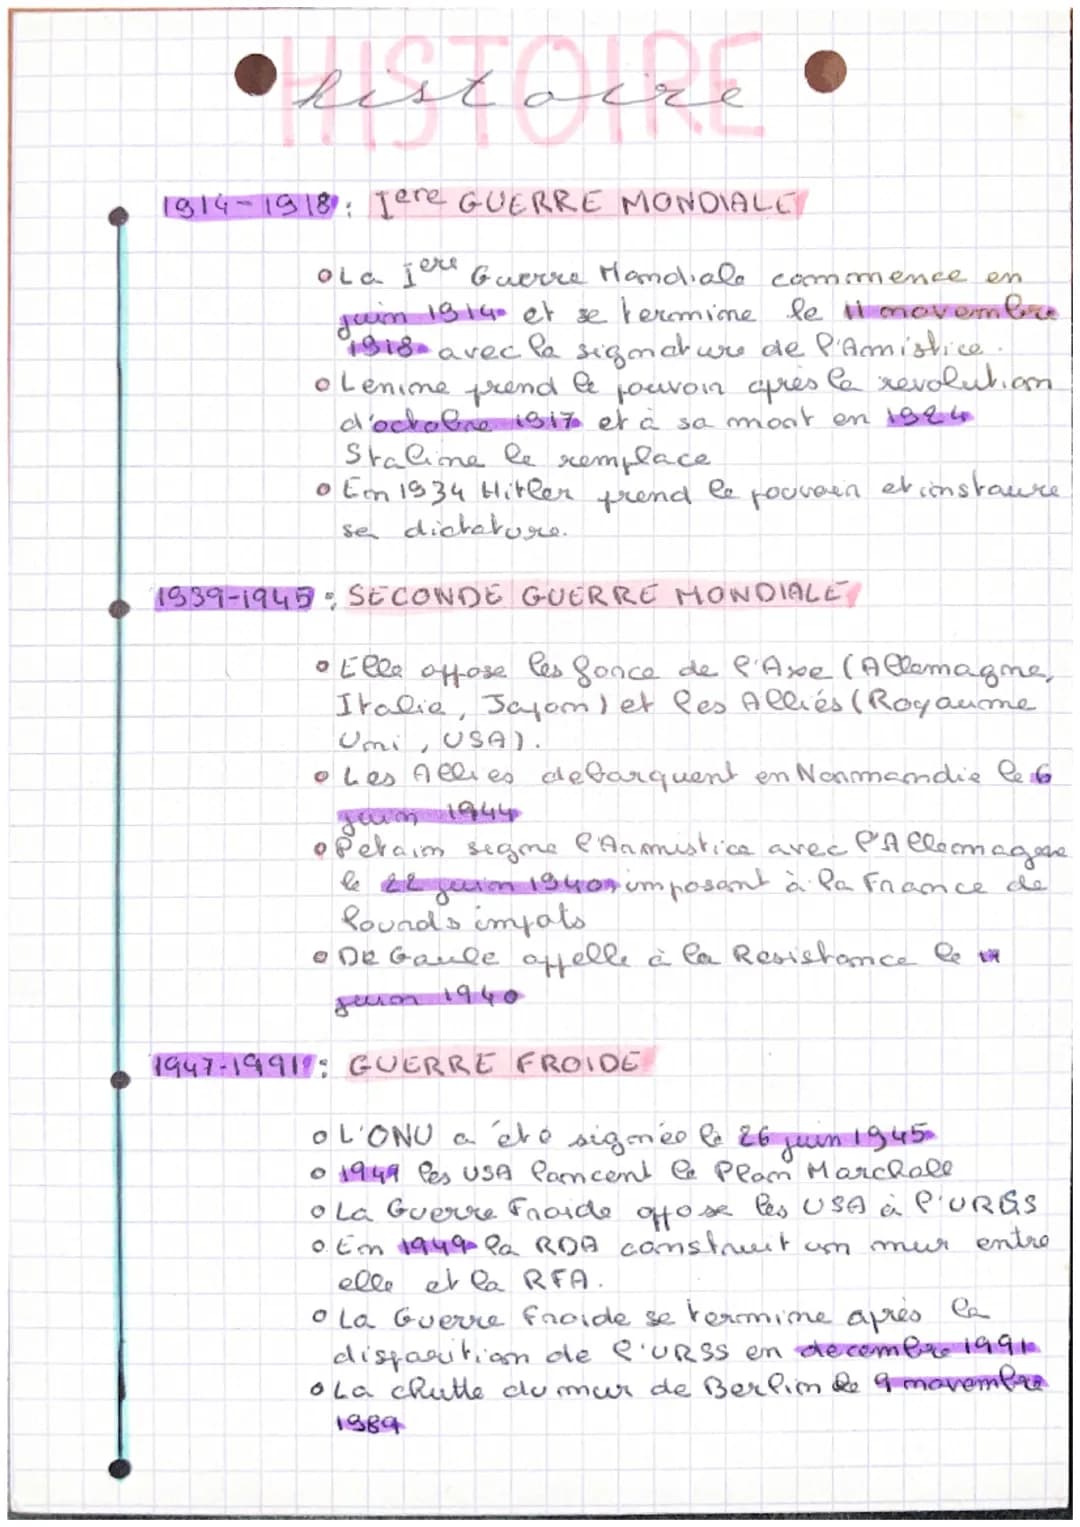 HISTOIRE
histoire
1914-1918 : Iere GUERRE MONDIALE
La Iere Guerre Mondiale commence en
juin 1914 et se termine le 11 novembre
1918 avec la signature de l'Amistice.
Lenine prend le pouvoir après la revolution
d'octobre 1917 et à sa mort en 1924
Staline le remplace
En 1934 Hitler prend le pouvoir et instaure
sa dictature.
1939-1945 : SECONDE GUERRE MONDIALE
Elle oppose les force de l'Axe (Allemagne,
Italie, Japon) et les Alliés (Royaume
Uni, USA).
Les Allies debarquent en Normandie le 6
juin 1944
Petain signe l'Armistice avec l'Allemagne
le 22 juin 1940, imposant à la France de
lourds impats
DE Gaule appelle à la Resistance le
juin 1940
1947-1991 : GUERRE FROIDE
L'ONU a été signée le 26 juin 1945
les USA lancent le Plan Marchall
La Guerre Froide oppose les USA à l'URSS
En 1949 la RDA construit un mur entre
elle et la RFA.
La Guerre froide se termine après la
disparition de l'URSS en decembre 1991
La chutte du mur de Berlin le 9 novembre
1989